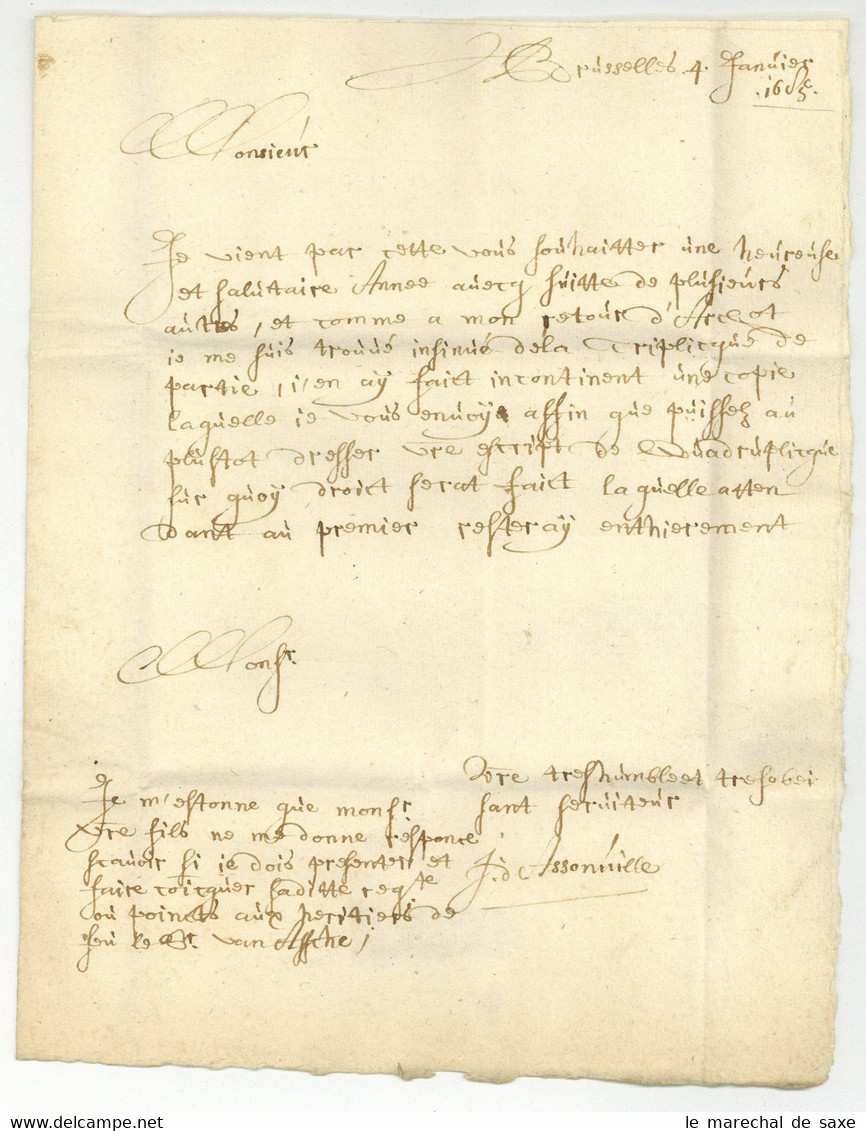 Brusselles 4. Janvier
Monsieur
Je vient par cette vous souhaitter une heureuse
et salutaire Annee avecq suitte de plusieurs
autres, et comme a mon retour d'Arschot
ie me suis trouvé insinué dela Triplicque de
partie, i'en ay faict incontinent une copie
laquelle ie vous envoye affin que puissez au
plustot dresser vre escript de Quadruplicque
sur quoy droict serat faict laquelle atten
dant au premier resteray enthierement
Monsr.
Vre treshumble et tresobei
sant serviteur
J. d'Assonville
Je m'estonne que monsr.
vre fils ne me donne responce
scavoir si ie dois presenter et
faire coicquer saditte reqte
ou poincts aux heritiers de
feu le Sr. van Assche,
le marechal de saxe